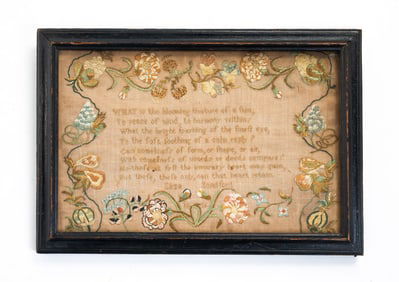 WHAT is the blooming tincture of a skin,
To peace of mind, to harmony within?
What the bright sparkling of the finest eye,
To the soft soothing of a calm reply?
Can comeliness of form, or shape, or air,
With comeliness of words or deeds compare?
No those at first the unwary heart may gain,
But these, these only, can that heart retain.